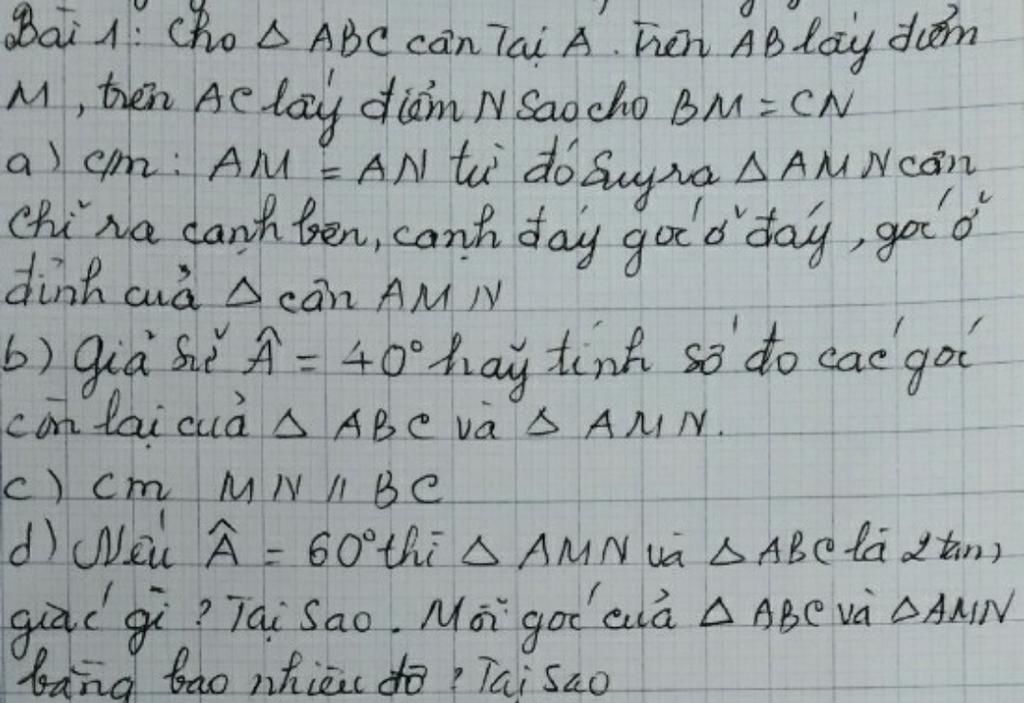 Bài 1: Cho Δ ABC cân Tại A. Trên AB lấy điểm
M, trên AC lấy điểm N sao cho BM = CN
a) c/m: AM = AN từ đó suy ra Δ AMN cân
chỉ ra cạnh bên, cạnh đáy góc ở đáy, góc ở
đỉnh của Δ cân AMN
b) Giả sử Â = 40° hãy tính số đo các góc
còn lại của Δ ABC và Δ AMN.
c) Cm MN // BC
d) Nếu Â = 60° thì Δ AMN và Δ ABC là 2 tam
giác gì? Tại sao. Mỗi góc của Δ ABC và Δ AMN
bằng bao nhiêu độ? Tại sao